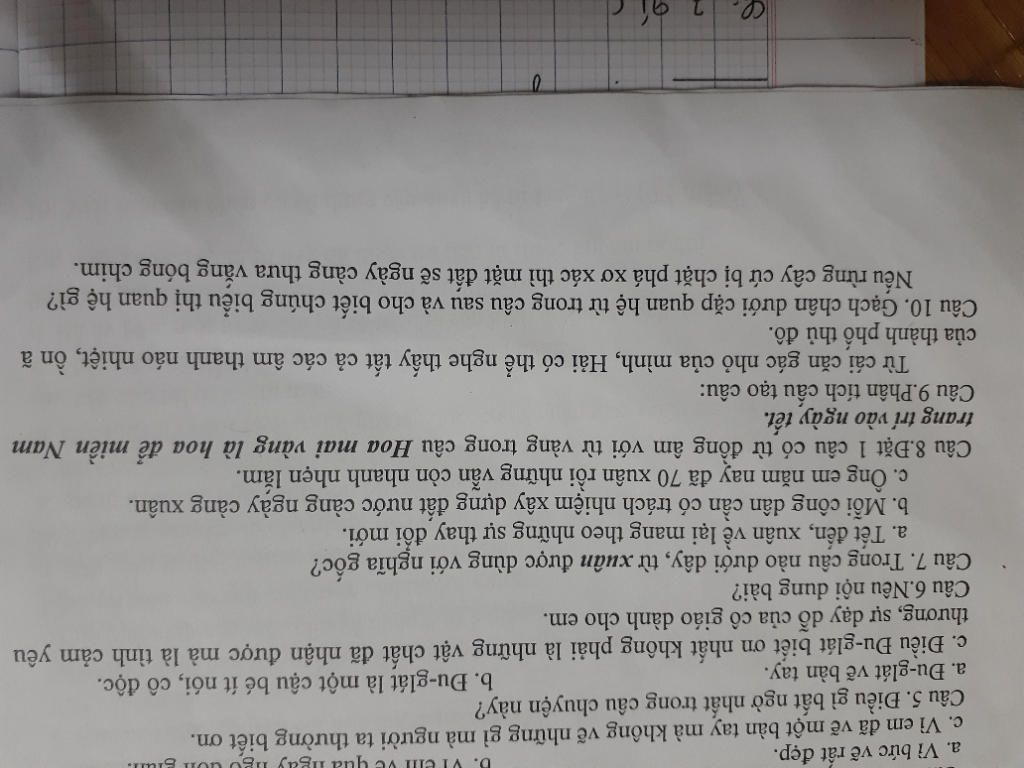 a. Vì bức vẽ rất đẹp. b. Vì em vẽ quá ngây ngô đơn giản.
c. Vì em đã vẽ một bàn tay mà không vẽ những gì mà người ta thường biết ơn.
Câu 5. Điều gì bất ngờ nhất trong câu chuyện này?
a. Đu-glát vẽ bàn tay. b. Đu-glát là một cậu bé ít nói, cô độc.
c. Điều Đu-glát biết ơn nhất không phải là những vật chất đã nhận được mà là tình cảm yêu
thương, sự dạy dỗ của cô giáo dành cho em.
Câu 6.Nêu nội dung bài?
Câu 7. Trong câu nào dưới dây, từ xuân được dùng với nghĩa gốc?
a. Tết đến, xuân về lại mang theo những sự thay đổi mới.
b. Mỗi công dân cần có trách nhiệm xây dựng đất nước càng ngày càng xuân.
c. Ông em năm nay đã 70 xuân rồi những vẫn còn nhanh nhẹn lắm.
Câu 8.Đặt 1 câu có từ đồng âm với từ vàng trong câu Hoa mai vàng là hoa để miền Nam
trang trí vào ngày tết.
Câu 9.Phân tích cấu tạo câu:
Từ cái căn gác nhỏ của mình, Hải có thể nghe thấy tất cả các âm thanh náo nhiệt, ồn ã
của thành phố thủ đô.
Câu 10. Gạch chân dưới cặp quan hệ từ trong câu sau và cho biết chúng biểu thị quan hệ gì?
Nếu rừng cây cứ bị chặt phá xơ xác thì mặt đất sẽ ngày càng thưa vắng bóng chim.